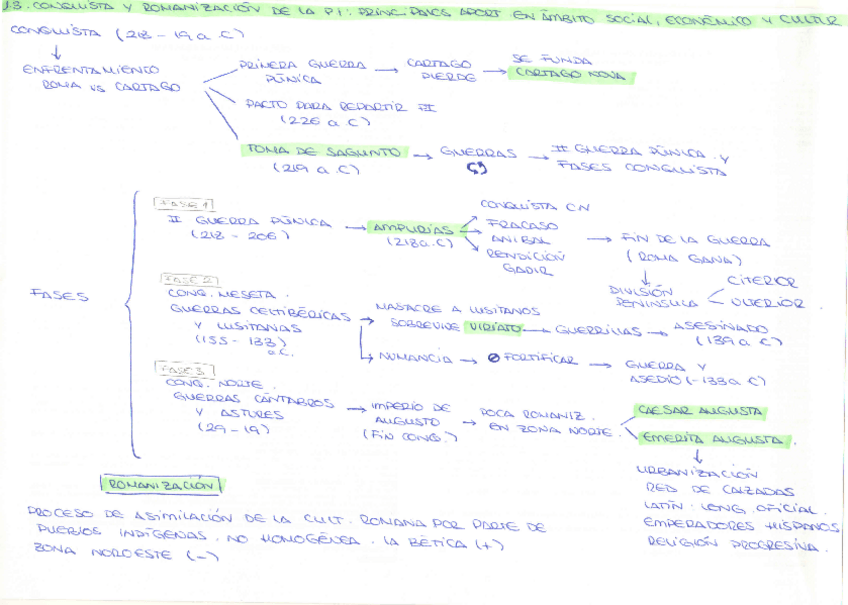 1.3. CONQUISTA Y ROMANIZACIÓN DE LA PI: PRINCIPALES APORT EN ÁMBITO SOCIAL, ECONÓMICO Y CULTUR
CONQUISTA (218 - 19 a.C)
ENFRENTAMIENTO
ROMA VS CARTAGO
PRIMERA GUERRA
PÚNICA
CARTAGO
PIERDE
SE FUNDA
CARTAGO NOVA
PACTO PARA REPARTIR PI
(226 a.C)
TOMA DE SAGUNTO
(219 a.C)
GUERRAS
II GUERRA PÚNICA Y
FASES CONQUISTA
FASES
FASE 1
II GUERRA PÚNICA
(218 - 206)
AMPURIAS
(218 a.C)
CONQUISTA CN
FRACASO
ANIBAL
RENDICIÓN
GADIR
FIN DE LA GUERRA
(ROMA GANA)
DIVISIÓN
PENINSULA
CITERIOR
ULTERIOR.
FASE 2
CONQ. MESETA.
GUERRAS CELTIBÉRICAS
Y LUSITANAS
(155 - 133)
a.C.
MASACRE A LUSITANOS
SOBREVIVE VIRIATO
GUERRILLAS
ASESINADO
(139 a.C)
NUMANCIA
Ø FORTIFICAR
GUERRA Y
ASEDIO (-133 a.C)
FASE 3
CONQ. NORTE.
GUERRAS CÁNTABROS
Y ASTURES
(29 - 19)
IMPERIO DE
AUGUSTO
(FIN CONQ.)
POCA ROMANIZ.
EN ZONA NORTE.
CAESAR AUGUSTA
EMERITA AUGUSTA.
URBANIZACIÓN
RED DE CALZADAS
LATÍN. LONG. OFICIAL.
EMPERADORES HISPANOS
RELIGIÓN PROGRESIVA.
ROMANIZACIÓN
PROCESO DE ASIMILACIÓN DE LA CULT. ROMANA POR PARTE DE
PUEBLOS INDÍGENAS. NO HOMOGÉNEA. LA BÉTICA (+)
ZONA NOROESTE (-)